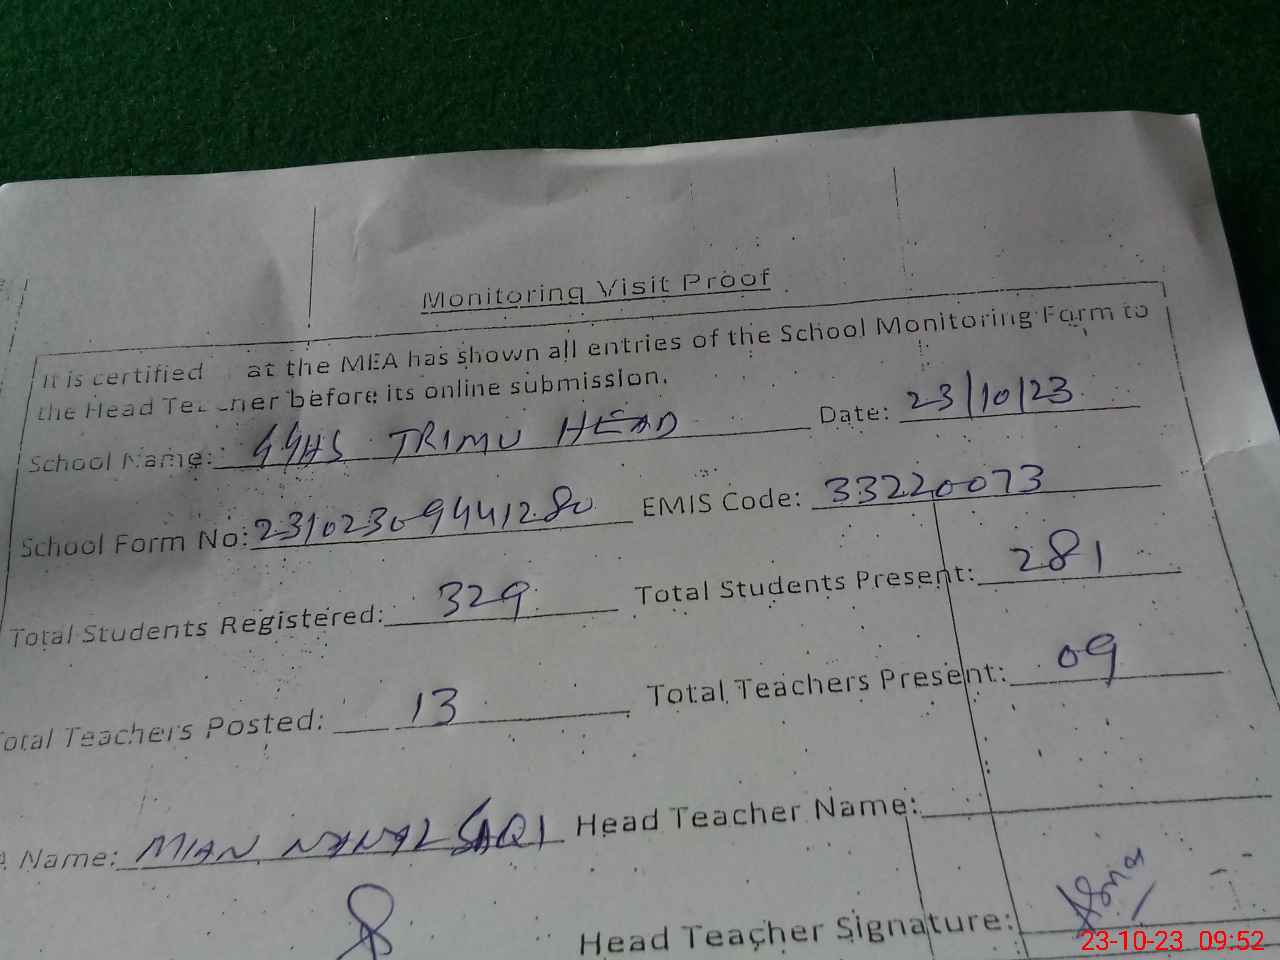 Monitoring Visit Proof
It is certified at the MEA has shown all entries of the School Monitoring Form to
the Head Teacher before its online submission.
School Name: GGHS TRIMU HEAD Date: 23/10/23
School Form No: 231023094441280 EMIS Code: 33220073
Total Students Registered: 329 Total Students Present: 281
Total Teachers Posted: 13 Total Teachers Present: 09
Name: MIAN Head Teacher Name:
Head Teacher Signature: Asma
23-10-23 09:52